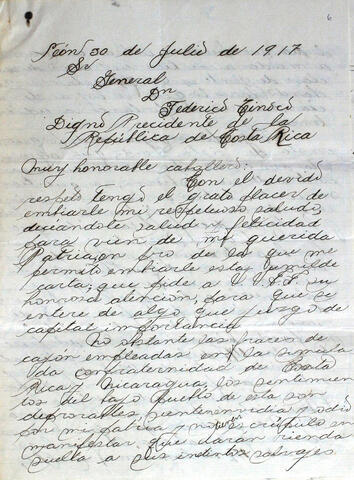 6
León, 30 de Julio de 1917
Sr
General
Dn
Federico Tinoco
Digno Presidente de la
República de Costa Rica
Muy honorable caballero:
Con el devido
respeto tengo el grato placer de
embiarle mi respetuoso saludo,
deceandole salud y felicidad
para vien de mi querida
Patria, en pro de la que me
permito embiarle esta humilde
carta; que pide a V.E. su
honrosa atención, para que se
entere de algo que juzgo de
capital importancia
No obstante las frases de
cajón empleadas en la
confraternidad de Costa
Rica y Nicaragua, los sentimien
tos del bajo pueblo de esta son
deplorables, sienten envidia y odio
por mi patria y no escrúpulo en
manifestar que daran rienda
suelta a sus instintos salvajes